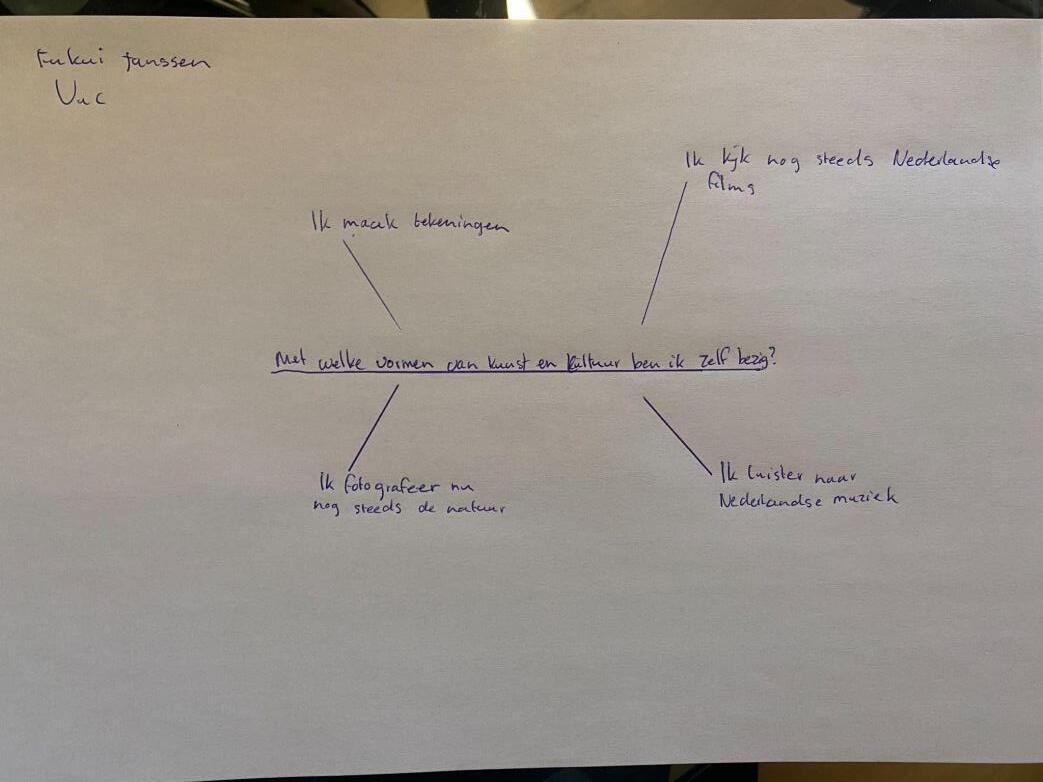 Fukui Janssen
Vuc
Ik kijk nog steeds Nederlandse
films
Ik maak tekeningen
Met welke vormen van kunst en kultuur ben ik zelf bezig?
Ik fotografeer nu
nog steeds de natuur
Ik luister naar
Nederlandse muziek